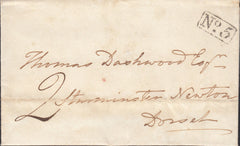 No. 5
Thomas Dashwood Esqr
2 Sturminster Newton
Dorset